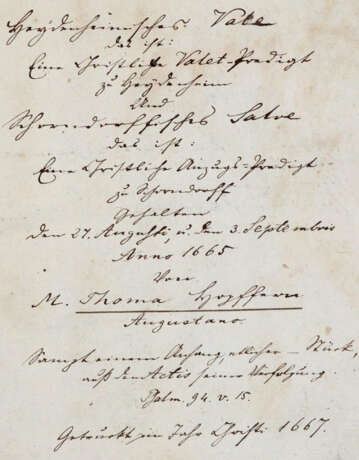 Heydenheimisches Vale
das ist:
Eine Christliche Valet-Predigt
zu Heydenheim
Und
Schorndorffisches Salve
das ist:
Eine Christliche Anzugs-Predigt
zu Schorndorff
Gehalten
den 27. Augusti, u. den 3. Septembris
Anno 1665
Von
M. Thoma Hopffern
Augustano.
Sampt einem Anhang etlicher Stück,
auß den Actis seiner Verfolgung.
Psalm. 94. v. 15.
Getruckt im Jahr Christi 1667.